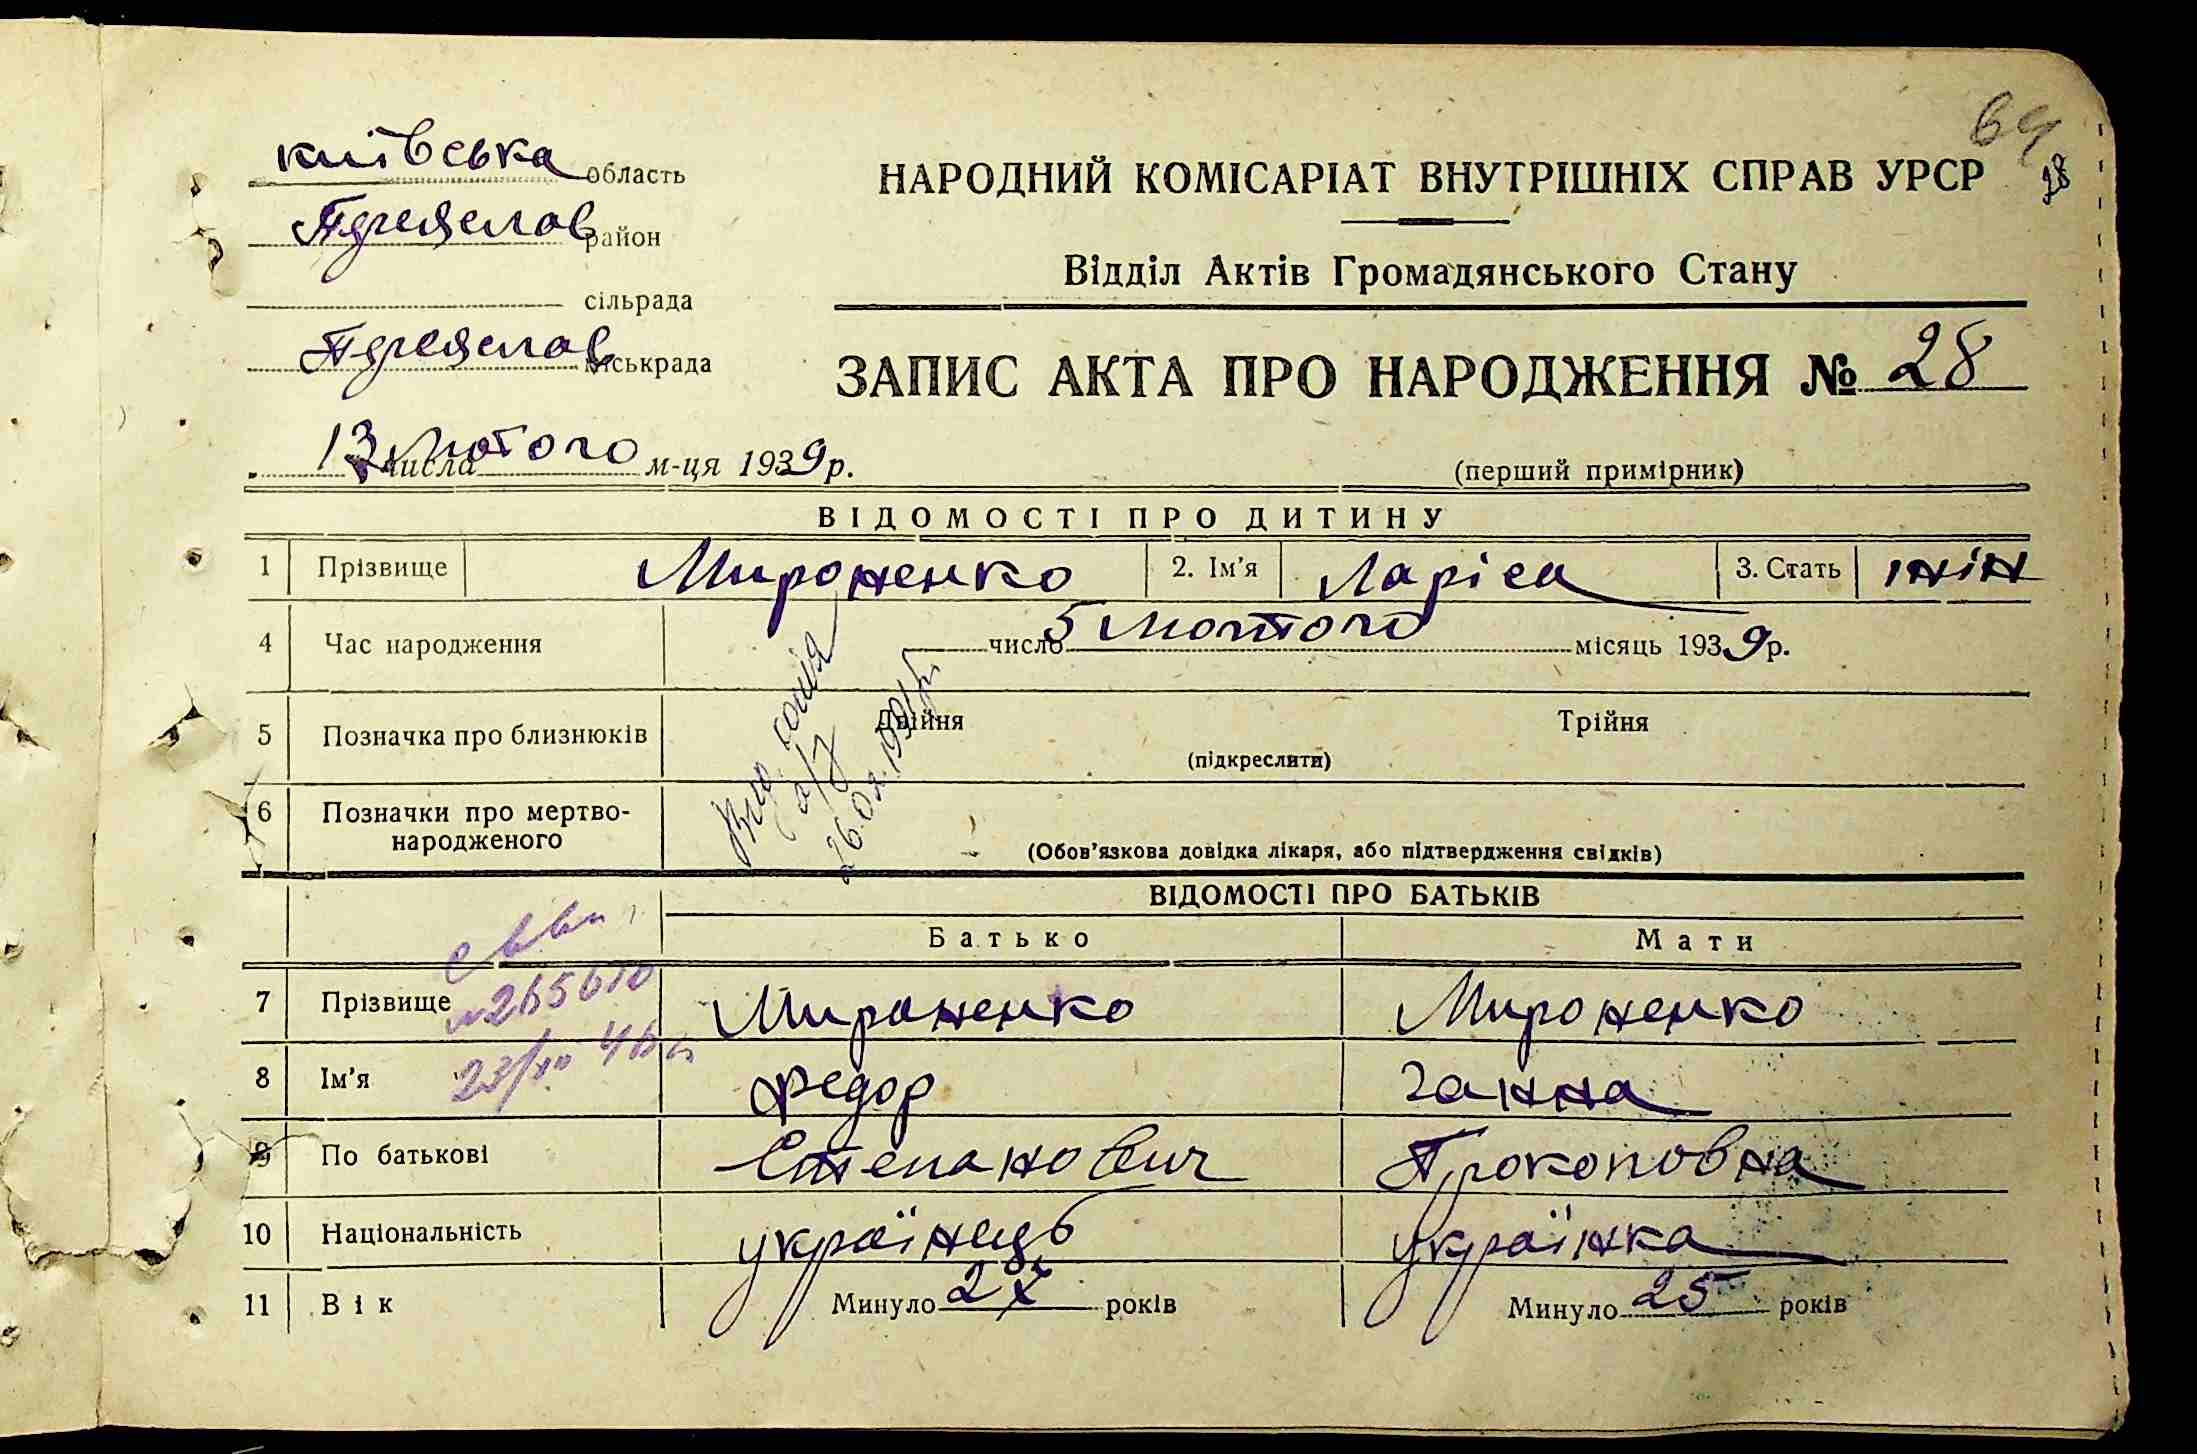 64
28
Київська область
НАРОДНИЙ КОМІСАРІАТ ВНУТРІШНІХ СПРАВ УРСР
Переяслав район
Відділ Актів Громадянського Стану
сільрада
Переяслав міськрада
ЗАПИС АКТА ПРО НАРОДЖЕННЯ № 28
13 числа Лютого м-ця 1939 р.
(перший примірник)
ВІДОМОСТІ ПРО ДИТИНУ
1 Прізвище Мироненко 2. Ім'я Ларіса 3. Стать жін
4 Час народження число 5 Лютого місяць 1939 р.
5 Позначка про близнюків Двійня Трійня
(підкреслити)
6 Позначки про мертво-
народженого
(Обов'язкова довідка лікаря, або підтвердження свідків)
копія
ВІДОМОСТІ ПРО БАТЬКІВ
Батько Мати
7 Прізвище Мироненко Мироненко
№ 265610
8 Ім'я Федор Ганна
9 По батькові Степанович Прокоповна
10 Національність українець українка
11 Вік Минуло 27 років Минуло 25 років